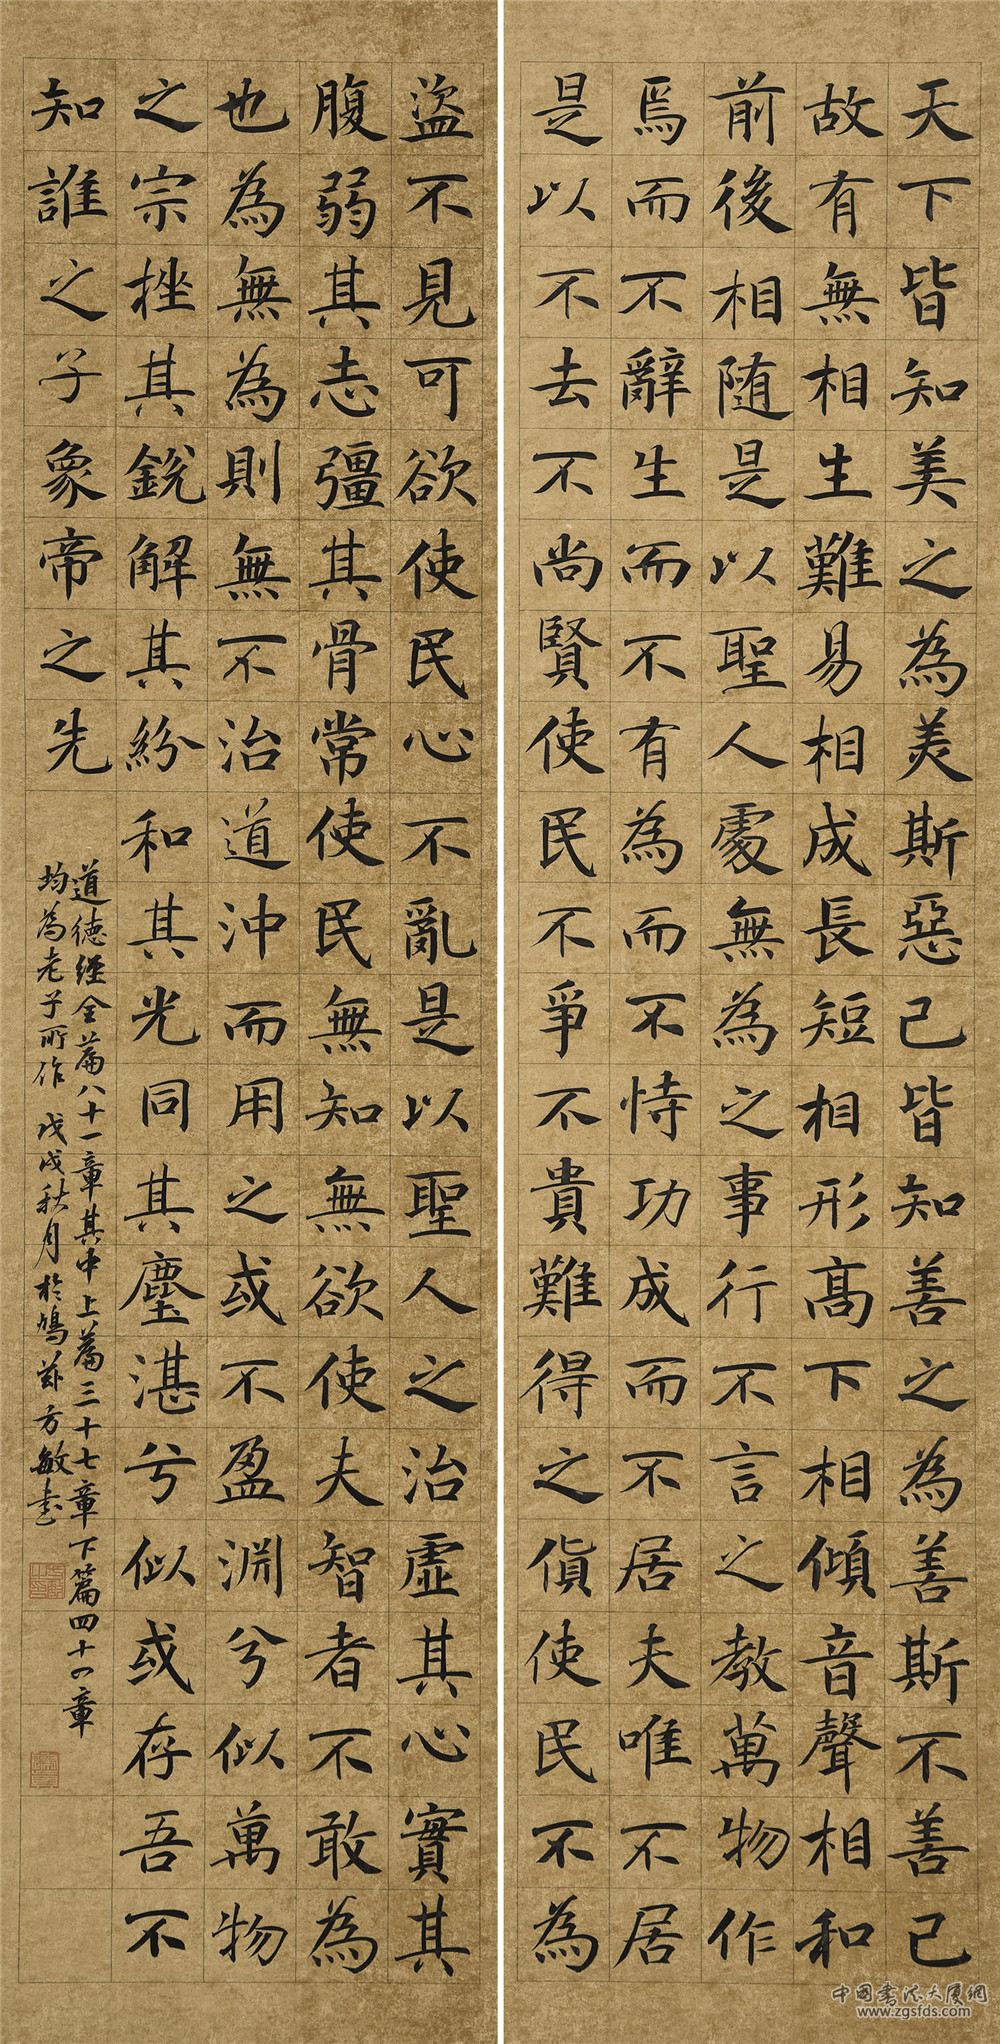 天下皆知美之為美斯惡已皆知善之為善斯不善已
故有無相生難易相成長短相形高下相傾音聲相和
前後相随是以聖人處無為之事行不言之教萬物作
焉而不辭生而不有為而不恃功成而不居夫唯不居
是以不去不尚賢使民不爭不貴難得之貨使民不為
盜不見可欲使民心不亂是以聖人之治虛其心實其
腹弱其志彊其骨常使民無知無欲使夫智者不敢為
也為無為則無不治道沖而用之或不盈淵兮似萬物
之宗挫其銳解其紛和其光同其塵湛兮似或存吾不
知誰之子象帝之先
道德經全篇八十一章其中上篇三十七章下篇四十四章
均為老子所作 戊戌秋月於鳩茲方敏書
中国书法大厦網
www.zgsfds.com